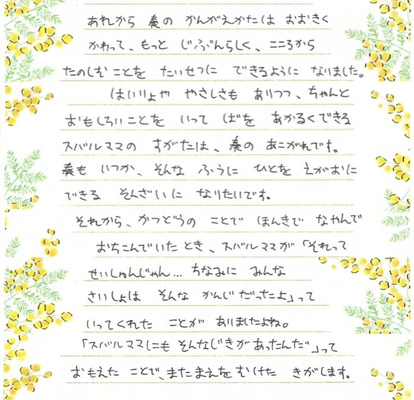 あれから 奏の かんがえかたは おおきく
かわって、もっと じぶんらしく、こころから
たのしむ ことを たいせつに できるように なりました。
はいりょや やさしさも ありつつ、ちゃんと
おもしろいことを いって ばを あかるく できる
スバルママの すがたは、奏の あこがれです。
奏も いつか、そんな ふうに ひとを えがおに
できる そんざいに なりたいです。
それから、かつどうの ことで ほんきで なやんで
おちこんでいた とき、スバルママが「それって
せいしゅんじゃん... ちなみに みんな
さいしょは そんな かんじだったよ」って
いってくれた ことが ありましたよね。
「スバルママにも そんなじきが あったんだ」って
おもえた ことで、またまえを むけた きがします。